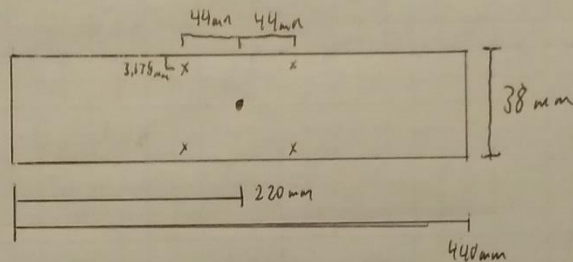 44mm 44mm
3.175mm x x
38mm
x x
220mm
440mm